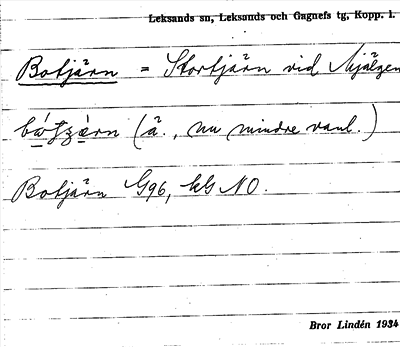 Leksands sn, Leksands och Gagnefs tg, Kopp. l.
Botjärn = Stortjärn vid Mjälgen
(ä., nu mindre vanl.)
Botjärn G96, kG NO.
Bror Lindén 1934